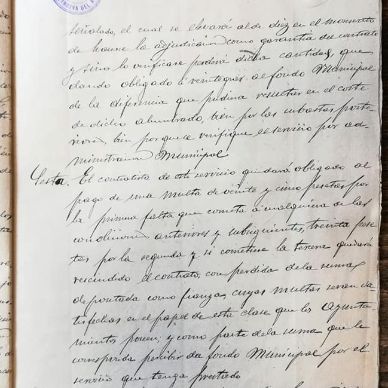 señalado, el cual se elevará al de diez en el momento
de hacerse la adjudicación como garantía del contrato
y si no lo verificase perderá dicha cantidad, que
dando obligado a reintegrar al fondo Municipal
de la diferencia que pudiera resultar en el coste
de dicho alumbrado, bien por las subastas poste
riores, bien por que se verifique el servicio por ad
ministracion Municipal
Sesta. El contratista de este servicio quedará obligado al
pago de una multa de veinte y cinco pesetas por
la primera falta que cometa a cualquiera de las
condiciones anteriores y subsiguientes, treinta pese
tas por la segunda y si cometiese la tercera quedará
rescindido el contrato, con perdida de la suma
depositada como fianza, cuyas multas seran sa
tisfechas en el papel de esta clase que los Ayunta
mientos ponen; y como parte de la suma que le
corresponda percibir de fondo Municipal por el
servicio que tenga prestado